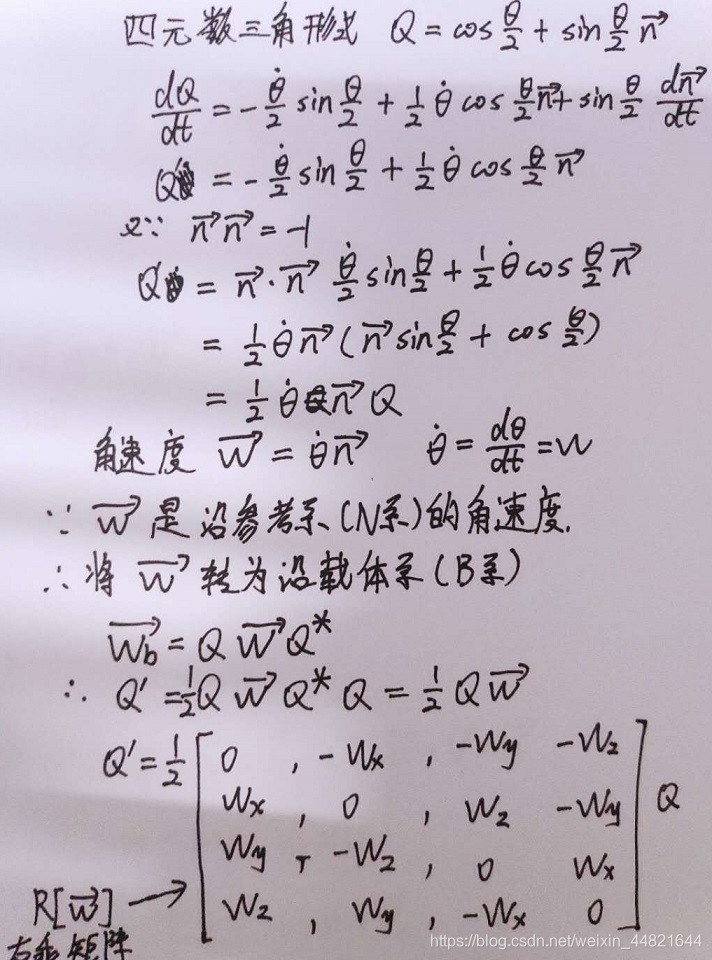 四元数三角形式 Q = cos θ/2 + sin θ/2 n⃗
dQ/dt = - θ̇/2 sin θ/2 + 1/2 θ̇ cos θ/2 n⃗ + sin θ/2 dn⃗/dt
Q = - θ̇/2 sin θ/2 + 1/2 θ̇ cos θ/2 n⃗
又∵ n⃗n⃗ = -1
Q = n⃗·n⃗ θ̇/2 sin θ/2 + 1/2 θ̇ cos θ/2 n⃗
= 1/2 θ̇ n⃗ (n⃗ sin θ/2 + cos θ/2)
= 1/2 θ̇ n⃗ Q
角速度 w⃗ = θ̇n⃗ θ̇ = dθ/dt = w
∵ w⃗ 是沿参考系(N系)的角速度.
∴ 将 w⃗ 转为沿载体系(B系)
W⃗b = Q w⃗ Q*
∴ Q' = 1/2 Q w⃗ Q* Q = 1/2 Q w⃗
Q' = 1/2 [ 0 , -Wx , -Wy -Wz
Wx , 0 , Wz -Wy
Wy , -Wz , 0 Wx
Wz , Wy , -Wx 0 ] Q
R[w⃗] →
右乘矩阵
https://blog.csdn.net/weixin_44821644